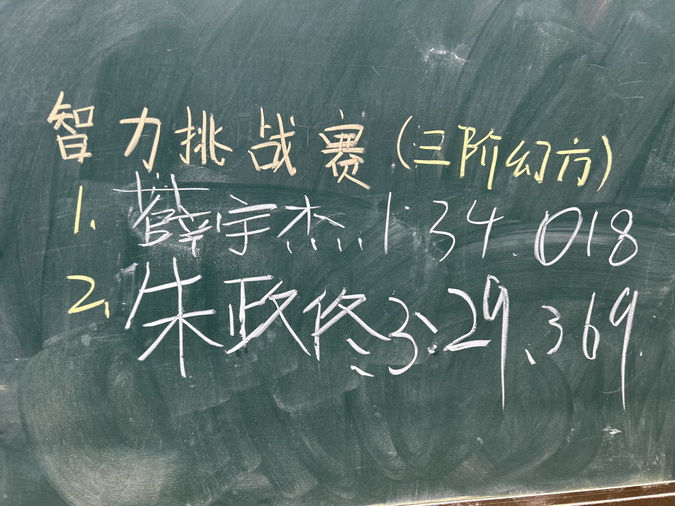 智力挑战赛(三阶幻方)
1. 薛宇杰 1:34.018
2. 朱政佟 3:29.369